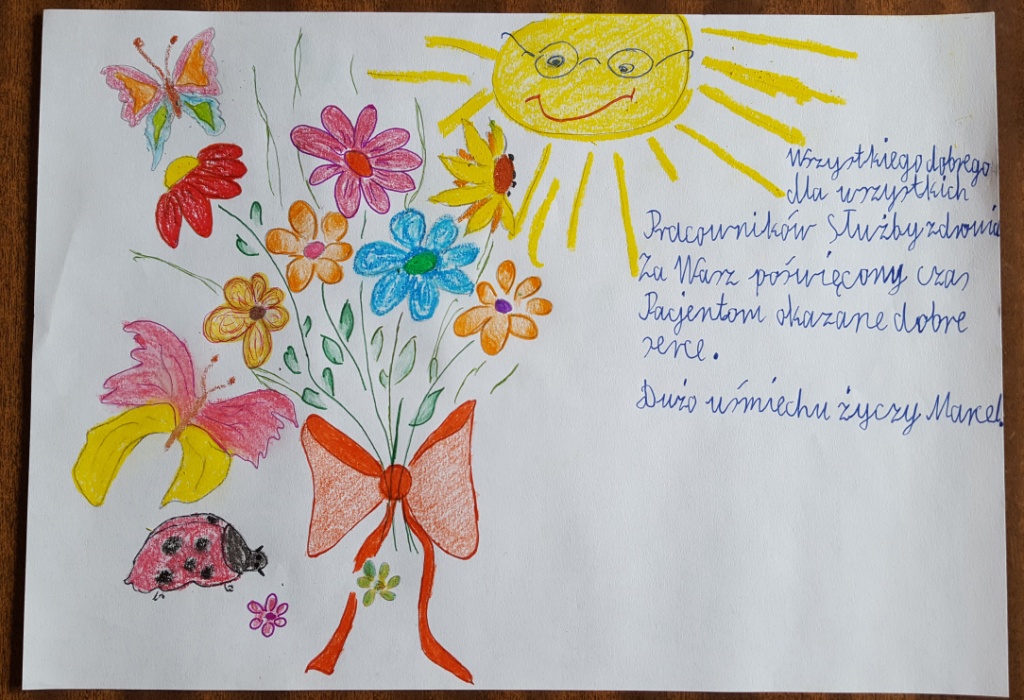 Wszystkiego dobrego
dla wszystkich
Pracowników Służby zdrowia
Za Wasz poświęcony czas
Pacjentom okazane dobre
serce.
Dużo uśmiechu życzy Marcel.